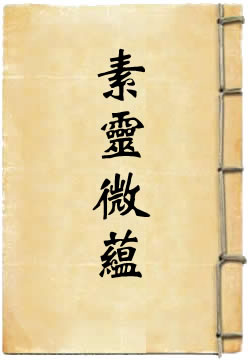 素靈微蘊